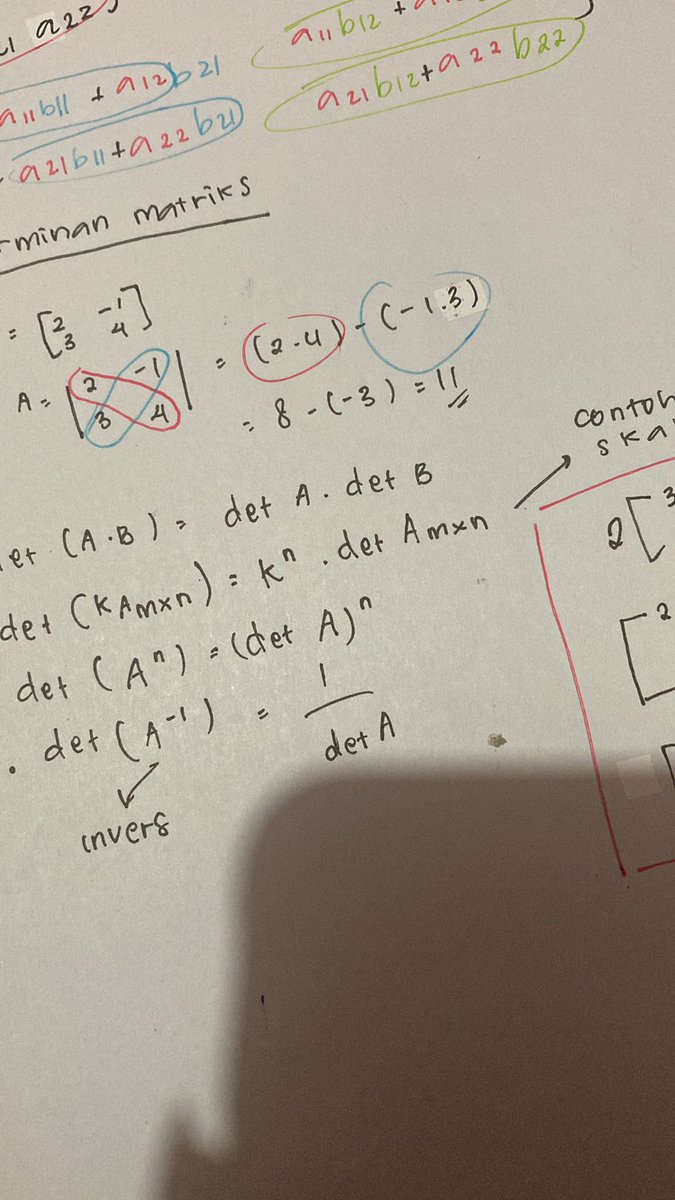 a22
a11b12 +
a11b11 + a12b21
a21b12+a22b22
a21b11+a22b21
rminan matriks
= [2 -1
3 4]
A = |2 -1
3 4| = (2.4) - (-1.3)
= 8 - (-3) = 11
contoh
ska
et (A.B) = det A . det B
2[3
det (KAmxn) = K^n . det Amxn
[2
det (A^n) = (det A)^n
. det (A^-1) = 1
det A
invers